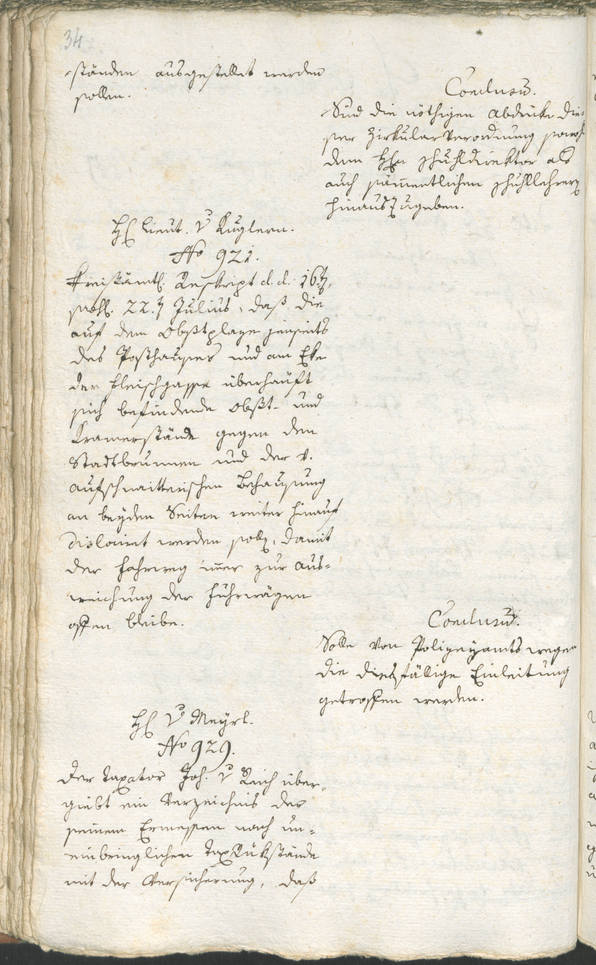 34
-ständen ausgestellt werden
sollen.
Conclusu̅.
Sind die nöthigen Abdrücke die-
ser Zirkularverordnung sowohl
dem Hh Schuhldirektor als
auch sämentlichen Schuhllehrern
hinauszugeben.
H Lieut. v Kuglern.
No 921.
Kreisämtl. Reskript d. d. 16t,
prœs. 22.t Julius, daß die
auf dem Obstplaze jenseits
des Posthauses und am Eke
der Fleischgasse überhäuft
sich befindende Obst- und
Kramerstände gegen den
Stadtbrunnen und der v.
Aufschnaitterischen Behausung
an beyden Seiten weiter hinauf
dislocirt werden solen, damit
der Fahrweg im̅er zur Aus-
weichung der Fuhrwägen
offen bleibe.
Conclusu̅.
Solle von Polizeyamts wegen
die diesfällige Einleitung
getroffen werden.
H v Meyrl.
No 929.
Der Taxator Joh. v Reich über-
giebt ein Verzeichnis der
seinem Ermessen nach un-
einbringlichen Taxrükstände
mit der Versicherung, daß